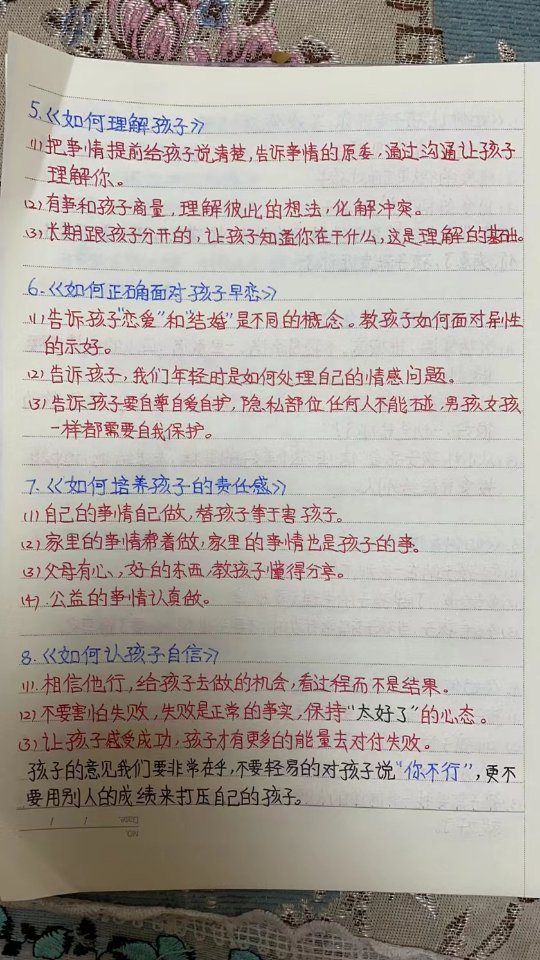 5.《如何理解孩子》
(1)把事情提前给孩子说清楚,告诉事情的原委,通过沟通让孩子
理解你。
(2)有事和孩子商量,理解彼此的想法,化解冲突。
(3)长期跟孩子分开的,让孩子知道你在干什么,这是理解的基础。
6.《如何正确面对孩子早恋》
(1)告诉孩子"恋爱"和"结婚"是不同的概念。教孩子如何面对异性
的示好。
(2)告诉孩子,我们年轻时是如何处理自己的情感问题。
(3)告诉孩子要自尊自爱自护,隐私部位任何人不能碰,男孩女孩
一样都需要自我保护。
7.《如何培养孩子的责任感》
(1)自己的事情自己做,替孩子等于害孩子。
(2)家里的事情帮着做,家里的事情也是孩子的事。
(3)父母有心、,好的东西,教孩子懂得分享。
(4)公益的事情认真做。
8.《如何让孩子自信》
(1).相信他行,给孩子去做的机会,看过程而不是结果。
(2)不要害怕失败,失败是正常的事实,保持"太好了"的心态。
(3)让孩子感受成功,孩子才有更多的能量去对付失败。
孩子的意见我们要非常在乎,不要轻易的对孩子说"你不行",更不
要用别人的成绩来打压自己的孩子。
Date. / /
NO.